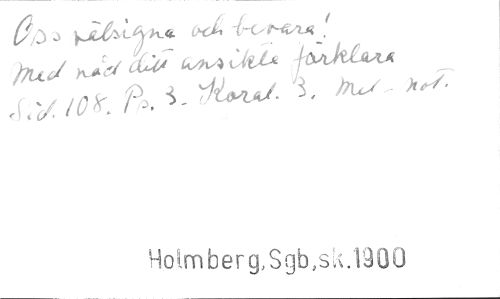 Oss välsigna och bevara!
Med nåd ditt ansikte förklara
Sid. 108. Ps. 3. Koral. 3. Mel-not.
Holmberg,Sgb,sk.1900